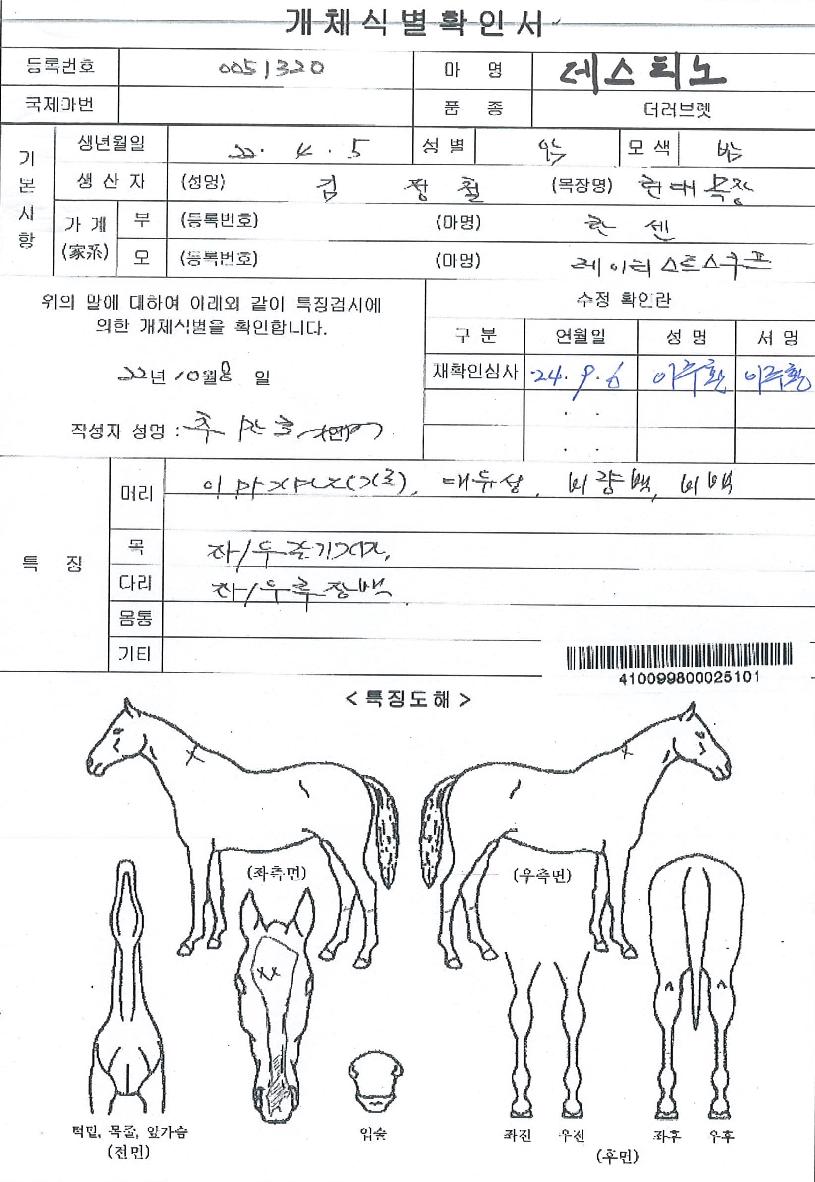 개체식별확인서
등록번호 0051320 마 명 데스티노
국제마번 품 종 더러브렛
기본사항
생년월일 22. 4. 5 성 별 암 모 색 밤
생 산 자 (성명) 김 정 철 (목장명) 한대목장
가 계 (家系)
부 (등록번호) (마명) 한 센
모 (등록번호) (마명)
위의 말에 대하여 아래와 같이 특징검사에
의한 개체식별을 확인합니다.
22년 10월 8 일
작성자 성명 :
수정 확인란
구 분 연월일 성 명 서 명
재확인심사 24. 9. 6 이주환 이주환
특 징
머리 이마쌍가마(가로), 대유성, 비량백, 비백
목 좌/우
다리 좌/우후장백
몸통
기타
410099800025101
< 특징도해 >
(좌측면) (우측면)
턱밑, 목줄, 앞가슴
(전면)
입술
좌전 우전 좌후 우후
(후면)